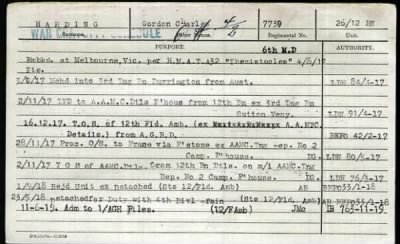 HARDING Gordon Charles 4/6 7739 26/12 BN
Surname. Regimental No. Unit.
WAR SCHEDULE
PURPORT.
6th M.D
Embkd. at Melbourne, Vic. per H.M.A.T. A32 "Themistocles" 4/8/17
Pte.
Mchd into 3rd Tng Bn Durrington from Aust. LDN 84/4-17
2/11/17 TFD to A.A.M.C. Dtls P'hous from 12th Bn ex 3rd Tng Bn
Sutton Veny. LDN 91/4-17
16.12.17. T.O.S. of 12th Fld. Amb. (ex A.A.MC.
Details.) from A.G.B.D. BEFO 42/2-17
28/11/17 Proc. O/S. to France via F'stone ex AAMC.Tng Dep. No 2
Camp. P'house. DG. LDN 80/5-17
2/11/17 T O S of AAMC. Dtls. from 12th Bn Dtls. on m/i AAMC. Tng
Dep. No 2 Camp. P'house. DG. LDN 76/3-17
1/6/18 Rejd Unit ex Detached (Sts 12/Fld. Amb) AB BEFO33/1-18
23/5/18 Detached for Duty with 4th Divl. Train (Sts 12/Fld Amb) AB BEFO33/1-18
11-6-19. Adm to 1/AGH Files. (12/FAmb) JMc IB 763-11-19